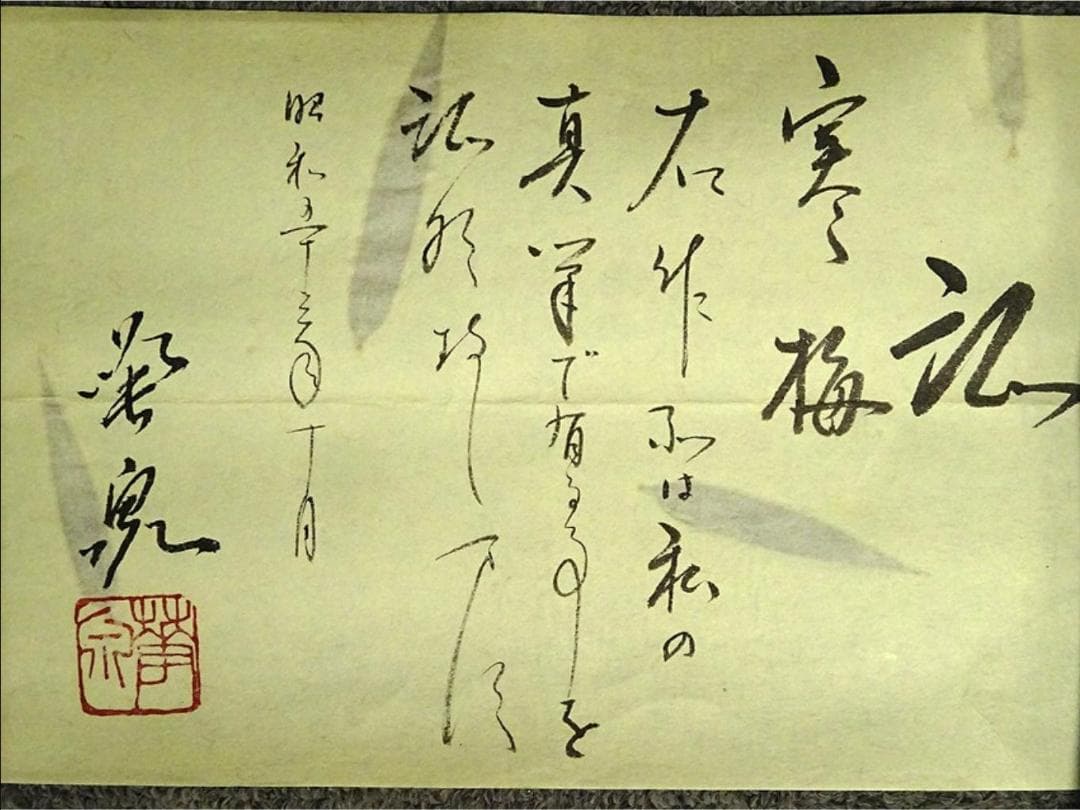 証
寒梅
右作品は私の
真筆で有る事を
証明致します
昭和五十三年十月